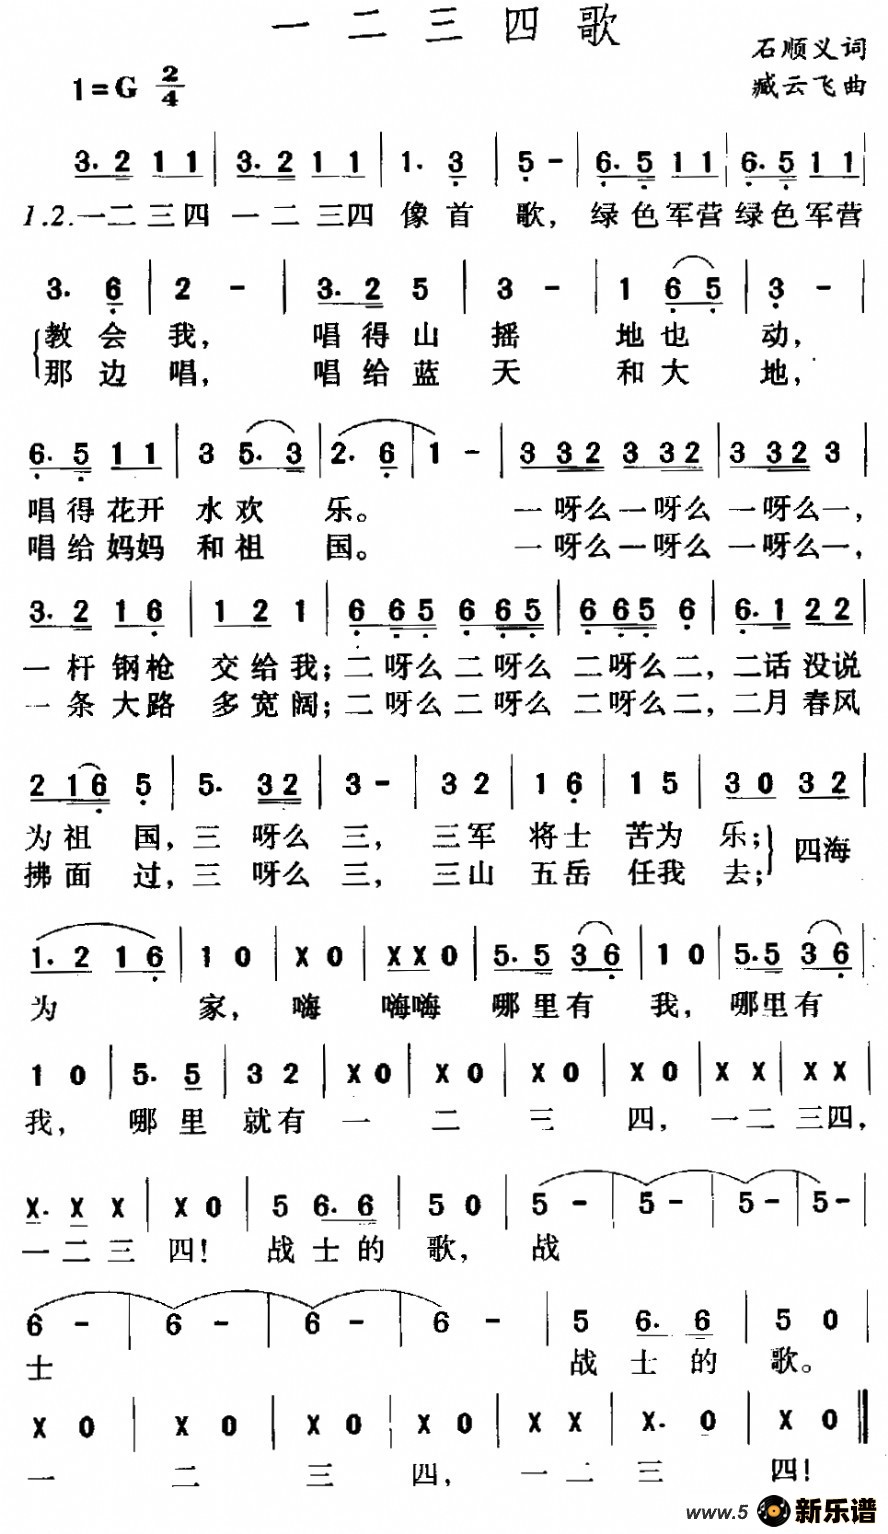 一二三四歌
石顺义词
1=G 2/4
臧云飞曲
3. 2 1 1 | 3. 2 1 1 | 1. 3 | 5 - | 6. 5 1 1 | 6. 5 1 1 |
1.2.一二三四 一二三四 像首 歌, 绿色军营绿色军营
3. 6 | 2 - | 3. 2 5 | 3 - | 1 6 5 | 3 - |
教会我, 唱得山摇 地也动,
那边唱, 唱给蓝天 和大地,
6. 5 1 1 | 3 5. 3 | 2. 6 | 1 - | 3 3 2 3 3 2 | 3 3 2 3 |
唱得花开 水欢 乐。 一呀么一呀么 一呀么一,
唱给妈妈 和祖 国。 一呀么一呀么 一呀么一,
3. 2 1 6 | 1 2 1 | 6 6 5 6 6 5 | 6 6 5 6 | 6. 1 2 2 |
一杆钢枪 交给我;二呀么二呀么 二呀么二,二话没说
一条大路 多宽阔;二呀么二呀么 二呀么二,二月春风
2 1 6 5 | 5. 3 2 | 3 - | 3 2 | 1 6 | 1 5 | 3 0 3 2 |
为祖国,三呀么三, 三军将士苦为乐; 四海
拂面过,三呀么三, 三山五岳任我去;
1. 2 1 6 | 1 0 | X 0 | X X 0 | 5. 5 3 6 | 1 0 | 5. 5 3 6 |
为 家, 嗨 嗨嗨 哪里有 我, 哪里有
1 0 | 5. 5 | 3 2 | X 0 | X 0 | X 0 | X 0 | X X | X X |
我, 哪里就有 一 二 三 四, 一二三四,
X. X X | X 0 | 5 6. 6 | 5 0 | 5 - | 5 - | 5 - | 5 - |
一二三 四! 战士的 歌, 战
6 - | 6 - | 6 - | 6 - | 5 6. 6 | 5 0 |
士 战士的 歌。
X 0 | X 0 | X 0 | X 0 | X X | X. 0 | X 0 ‖
一 二 三 四, 一二三 四!
www.5 新乐谱